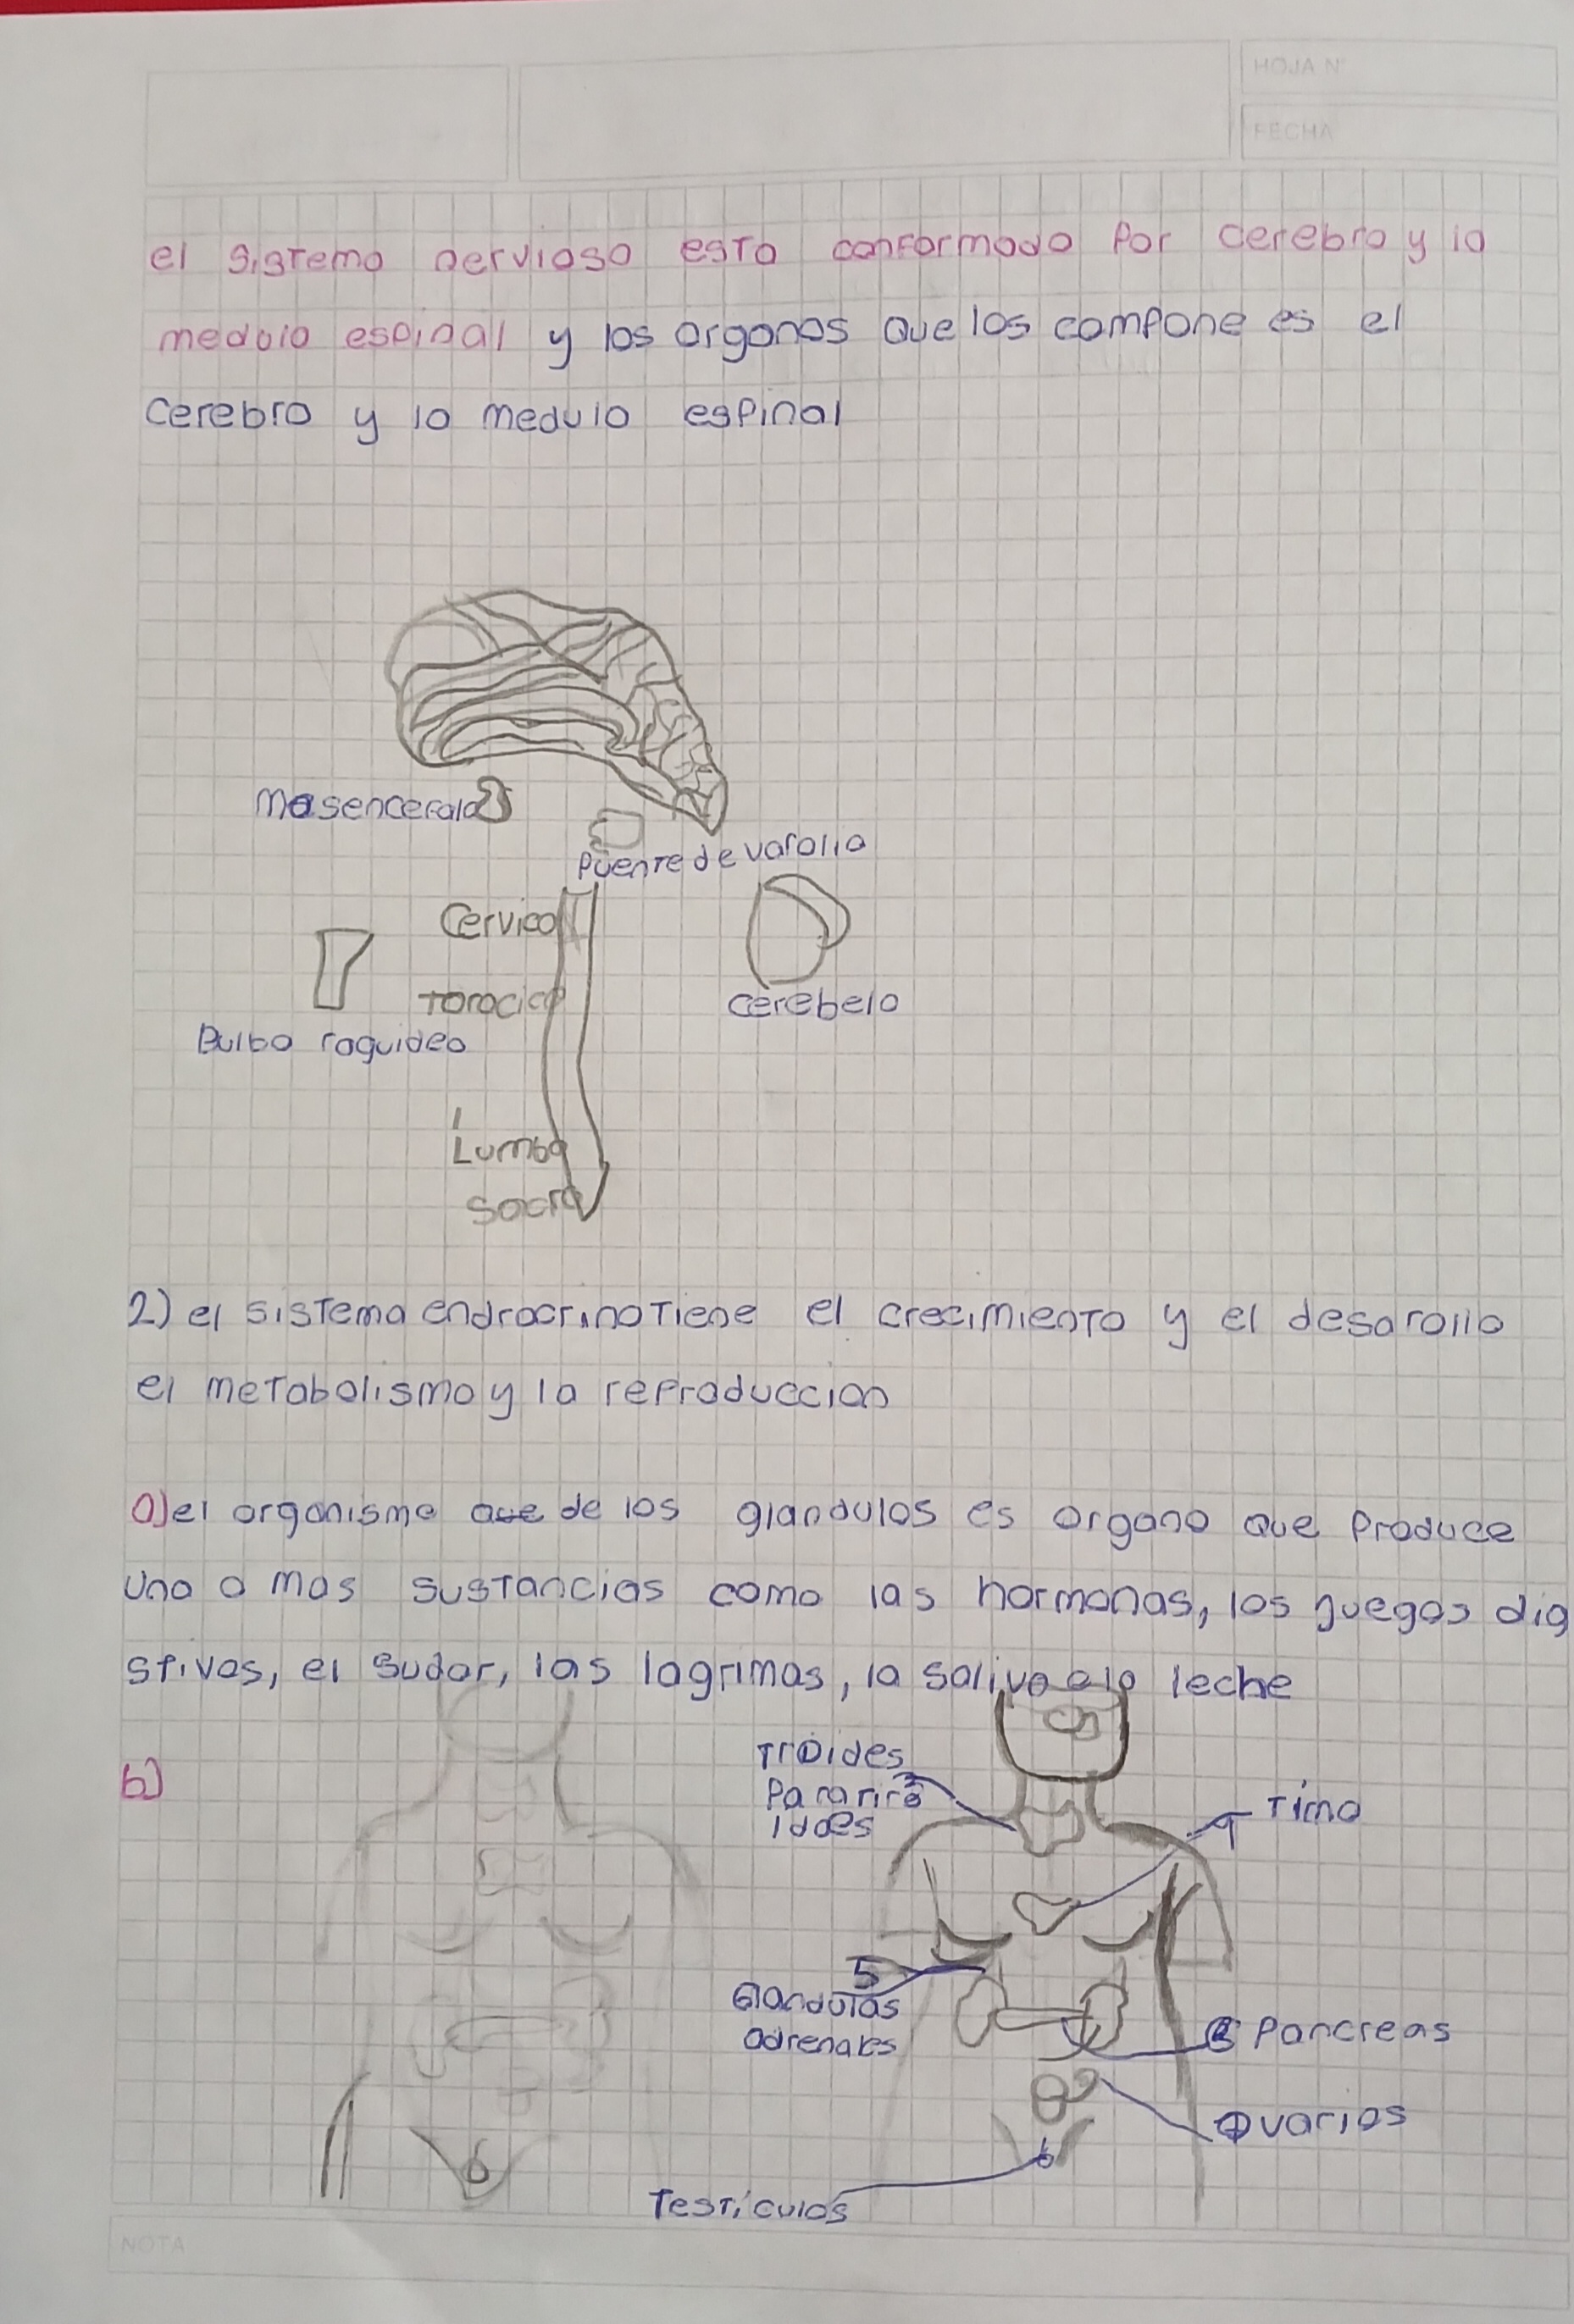 HOJA N°
FECHA
el sistema nervioso esta conformado por cerebro y la
medula espinal y los organos que los compone es el
cerebro y la medula espinal
Mesencefalo
Puente de varolio
Cervical
Toracico
Cerebelo
Bulbo raguideo
Lumba
Sacra
2) el sistema endrocrino tiene el crecimiento y el desarollo
el metabolismo y la reproduccion
a) el organismo de los glandulas es organo que produce
una o mas sustancias como las hormonas, los juegos dig
stivos, el sudor, las lagrimas, la saliva o la leche
b)
Troides
Parariro
idoes
Timo
5
Glandulas
adrenales
Pancreas
Ovarios
6
6
Testiculos
NOTA